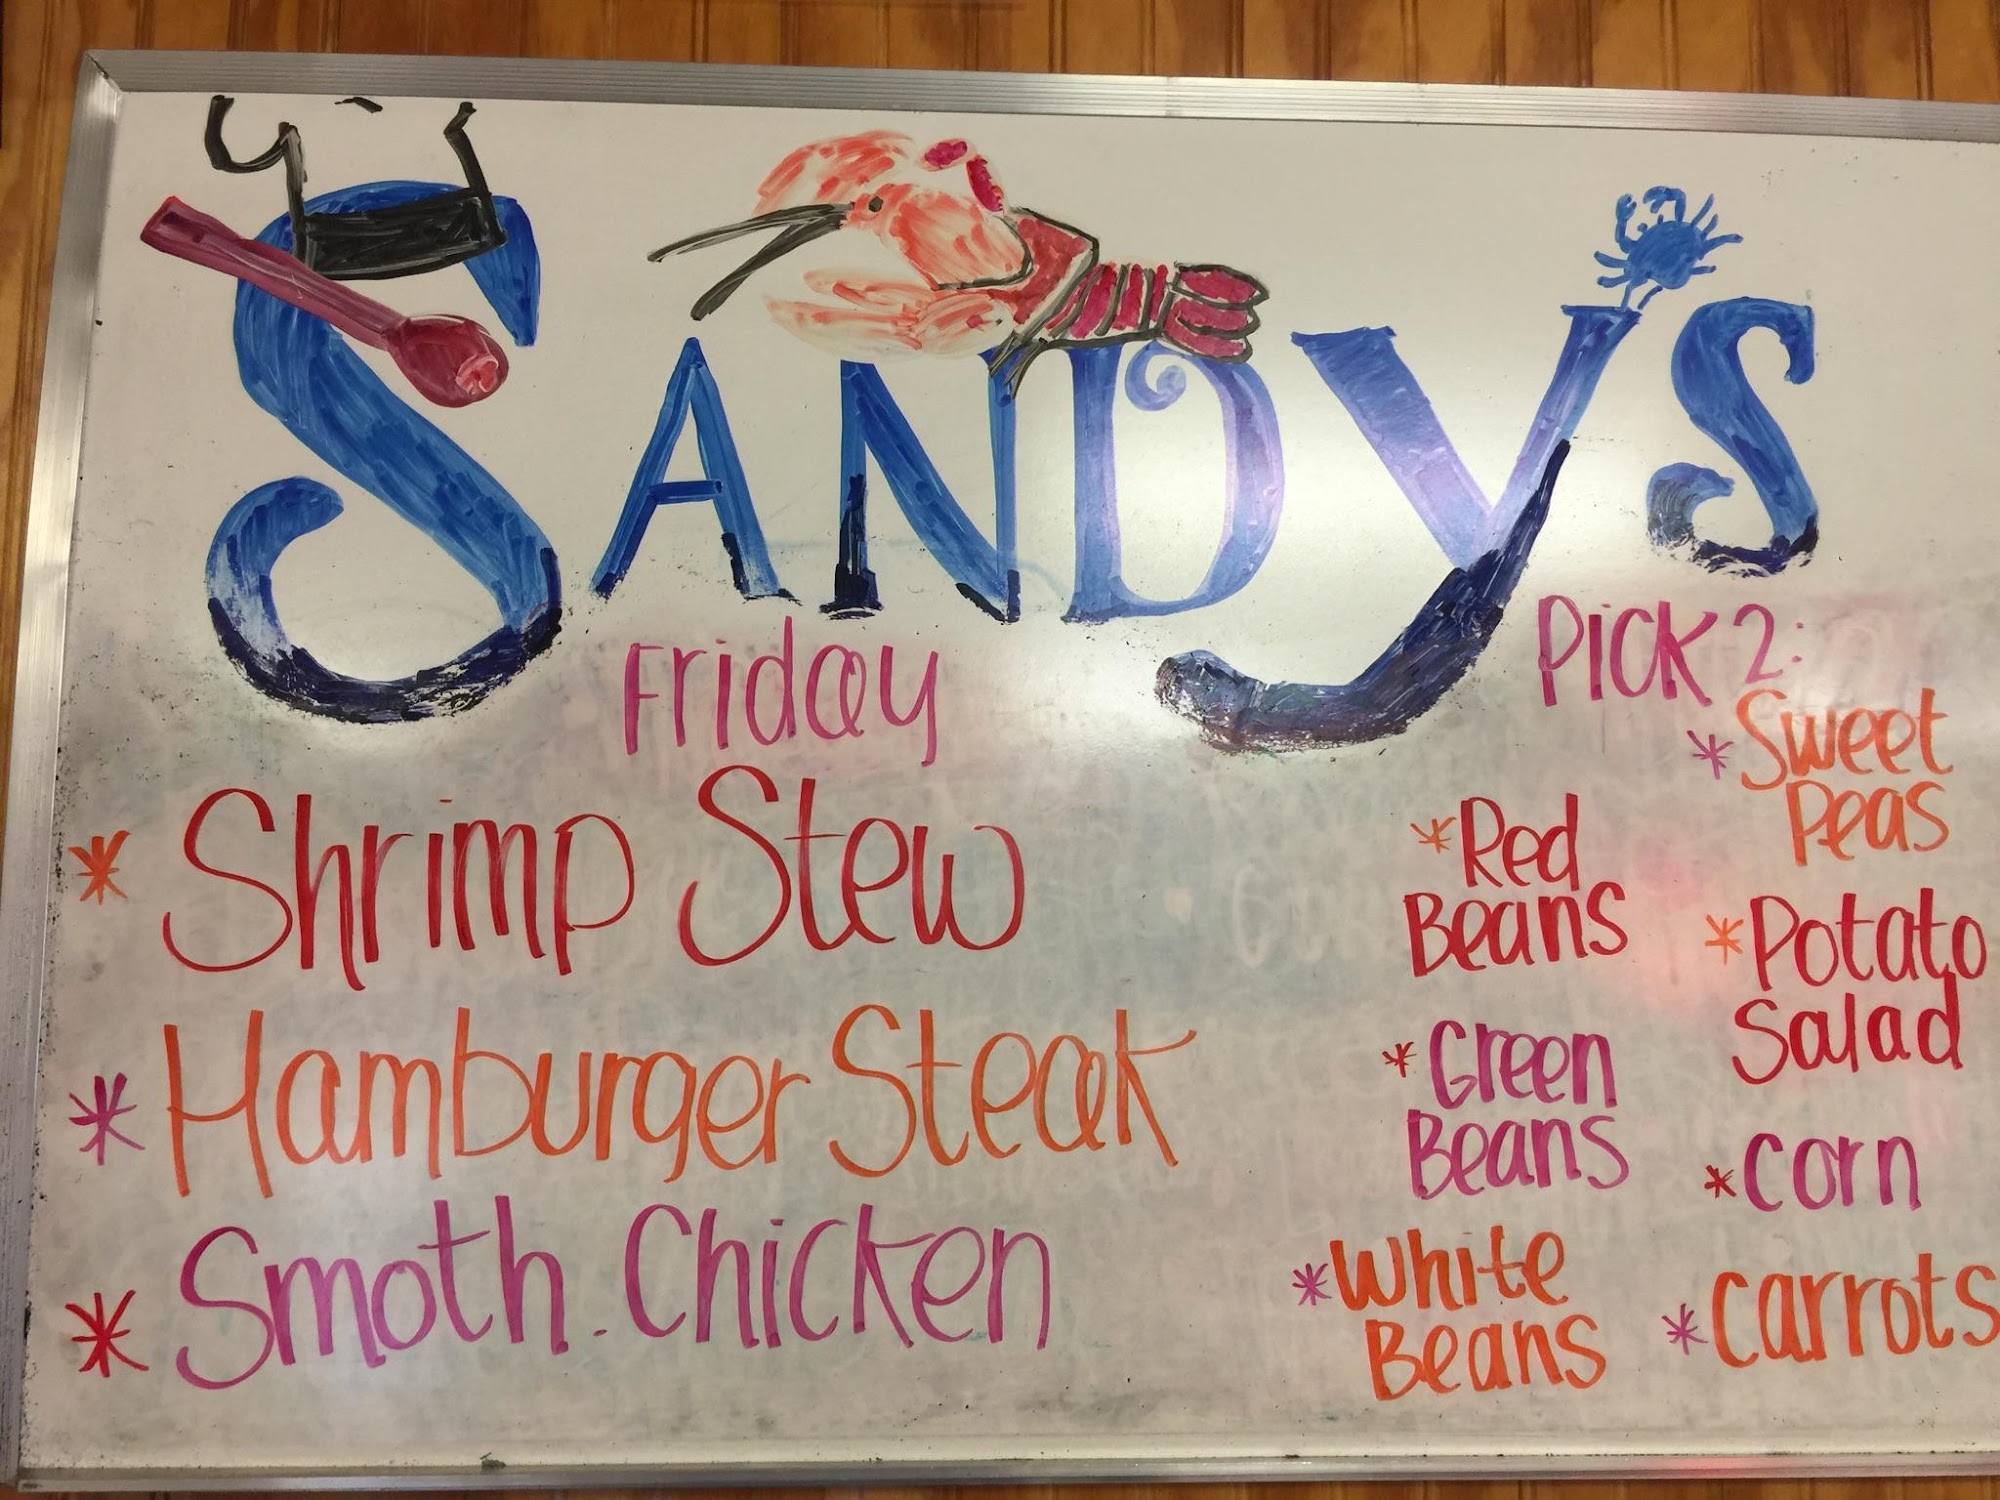 SANDY'S
Friday
Shrimp Stew
Hamburger Steak
Smoth. Chicken
Pick 2:
* Sweet
Peas
* Red
Beans
* Potato
Salad
* Green
Beans
* Corn
* White
Beans
* Carrots